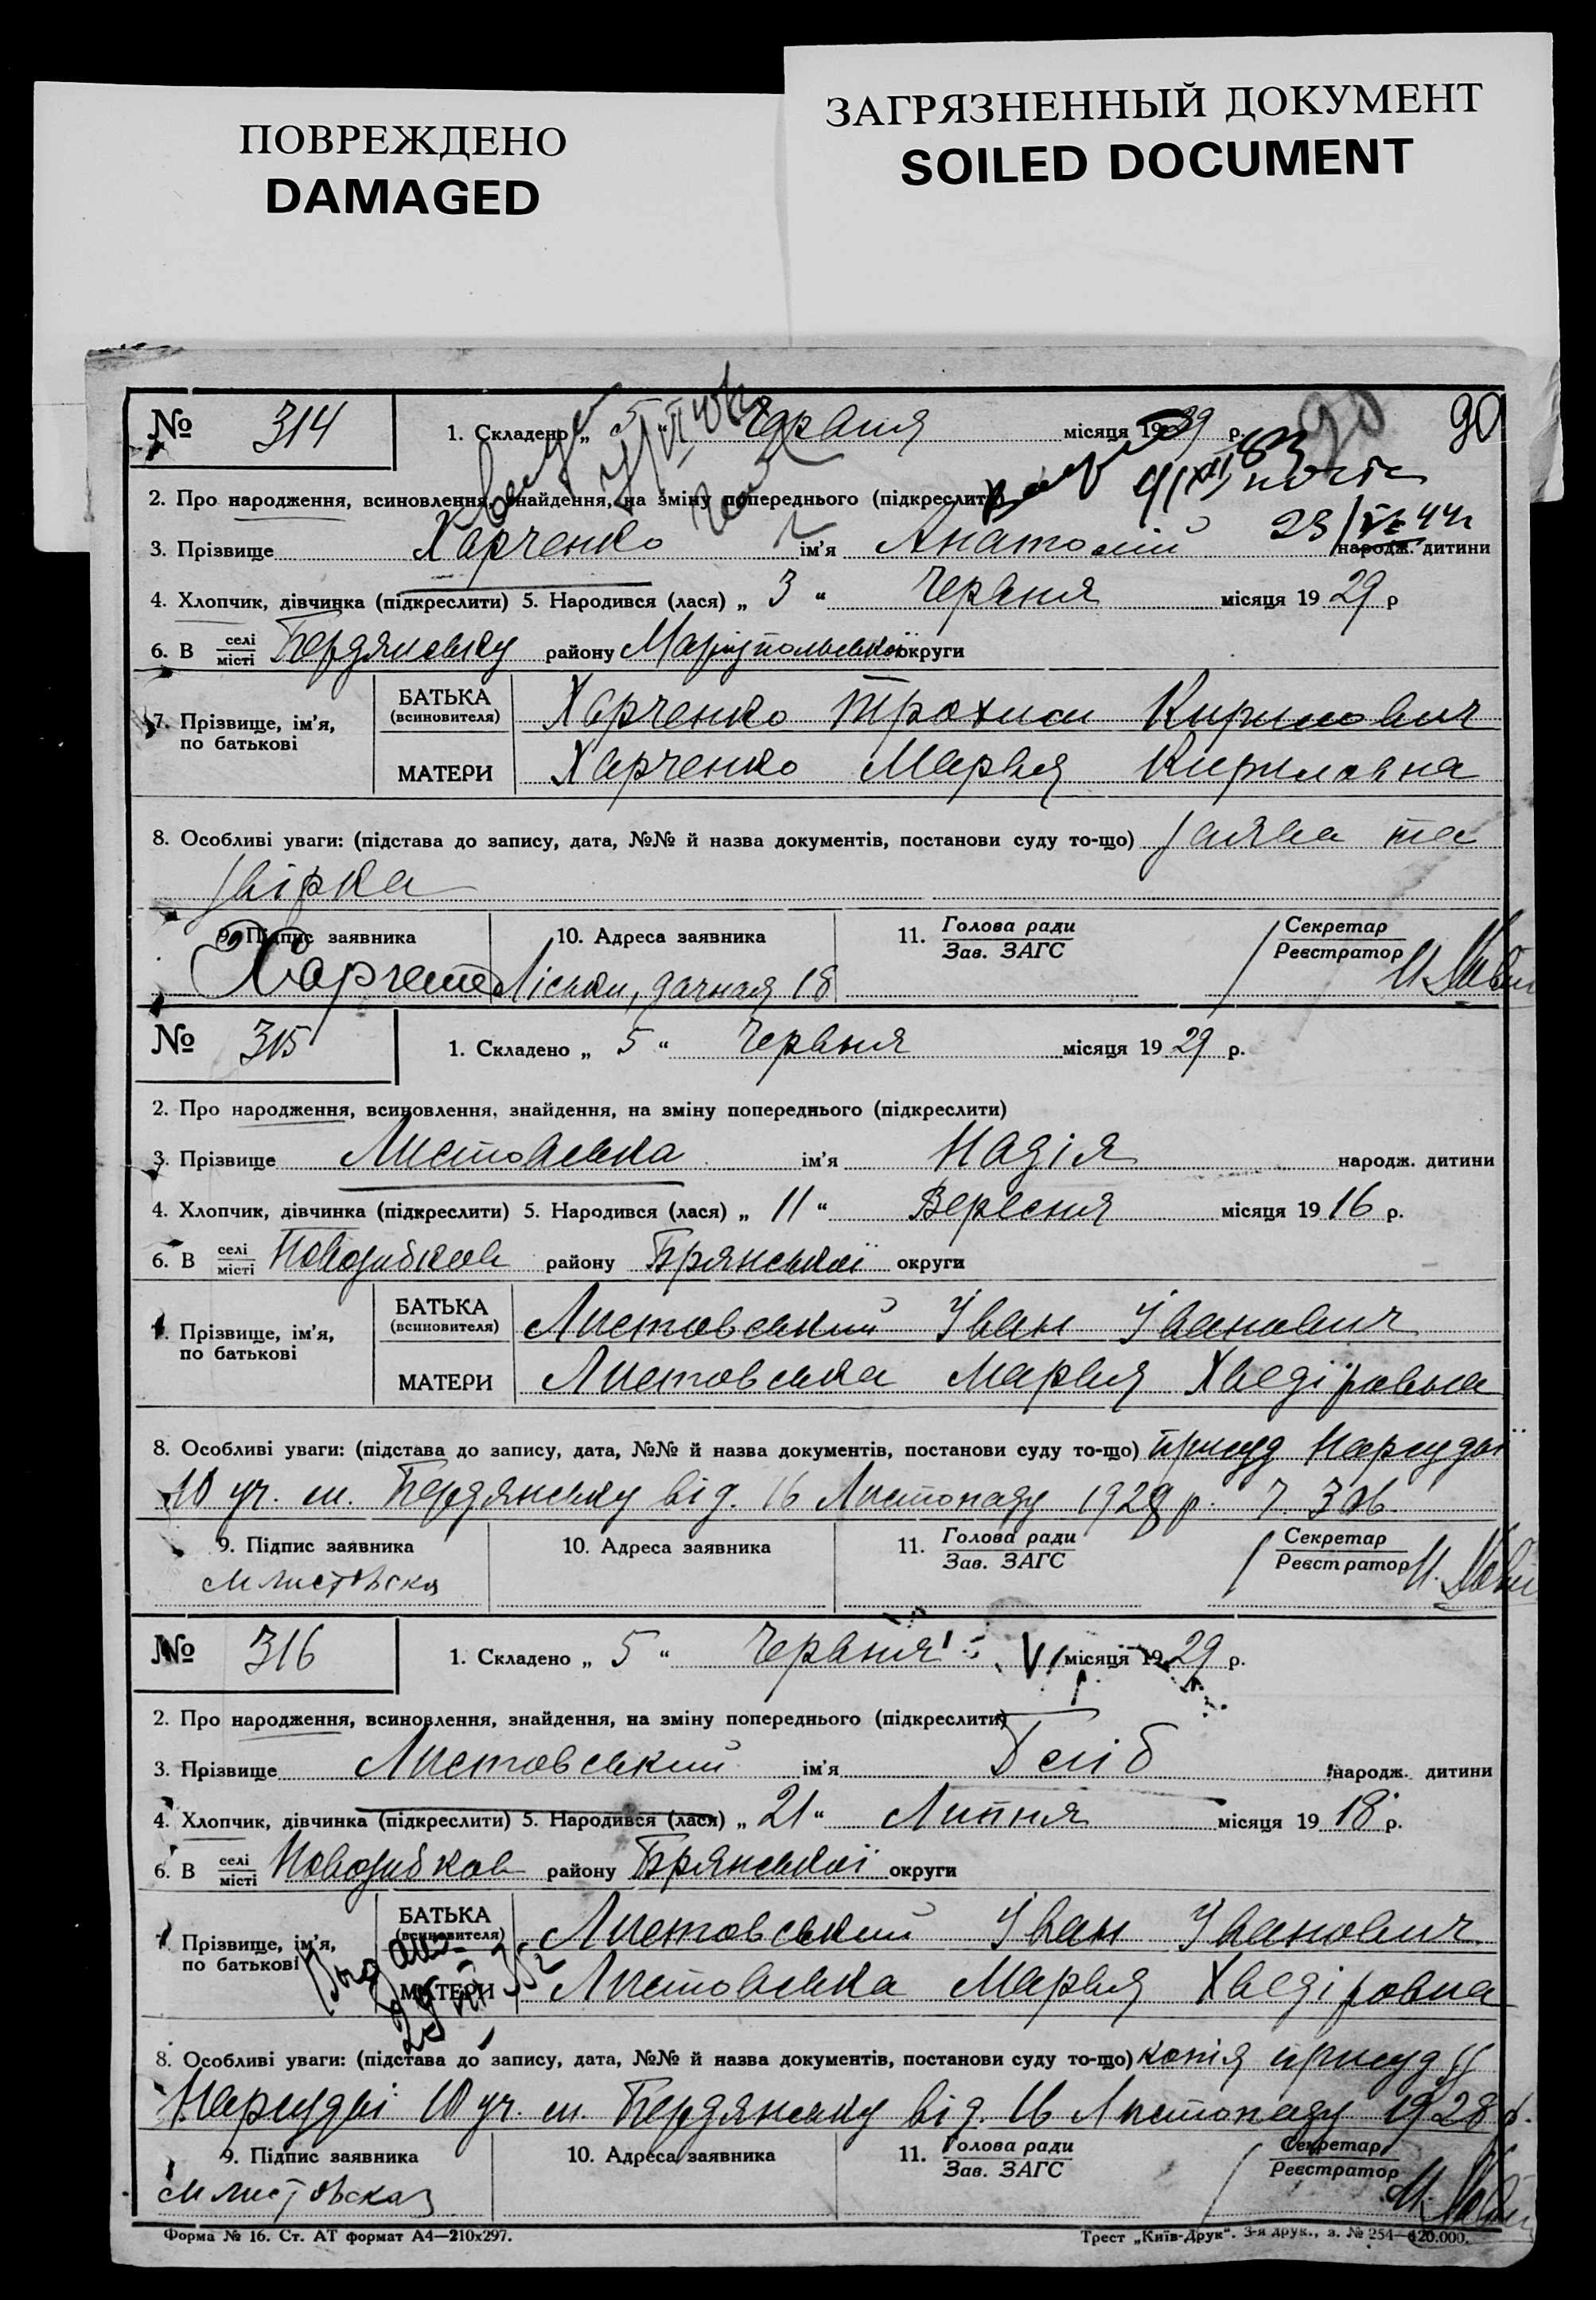 ПОВРЕЖДЕНО
DAMAGED
ЗАГРЯЗНЕННЫЙ ДОКУМЕНТ
SOILED DOCUMENT
90 90
№ 314 1. Складено „ 5 “ Червня місяця 1929 р.
2. Про народження, всиновлення, знайдення, на зміну попереднього (підкреслити)
23/VI 44г
3. Прізвище Харченко ім'я Анатолій народж. дитини
4. Хлопчик, дівчинка (підкреслити) 5. Народився (лася) „ 3 “ Червня місяця 1929 р
6. В селі місті Бердянську району Маріупольської округи
7. Прізвище, ім'я, по батькові БАТЬКА (всиновителя) Харченко Трохим Кирилович
МАТЕРИ Харченко Марья Кириловна
8. Особливі уваги: (підстава до запису, дата, №№ й назва документів, постанови суду то-що) заява та
звірка
9. Підпис заявника 10. Адреса заявника 11. Голова ради Зав. ЗАГС Секретар Реєстратор
Харченко Ліски, дачная 18
№ 315 1. Складено „ 5 “ Червня місяця 1929 р.
2. Про народження, всиновлення, знайдення, на зміну попереднього (підкреслити)
3. Прізвище Листовська ім'я Надія народж. дитини
4. Хлопчик, дівчинка (підкреслити) 5. Народився (лася) „ 11 “ Вересня місяця 1916 р.
6. В селі місті Новозибков району Брянської округи
7. Прізвище, ім'я, по батькові БАТЬКА (всиновителя) Листовський Іван Іванович
МАТЕРИ Листовська Марья Хведіровна
8. Особливі уваги: (підстава до запису, дата, №№ й назва документів, постанови суду то-що) присуд Нарсудьї
10 уч. м. Бердянську від. 16 Листопаду 1928 р.
9. Підпис заявника 10. Адреса заявника 11. Голова ради Зав. ЗАГС Секретар Реєстратор
М Листовская
№ 316 1. Складено „ 5 “ Червня місяця 1929 р.
2. Про народження, всиновлення, знайдення, на зміну попереднього (підкреслити)
3. Прізвище Листовський ім'я Гліб народж. дитини
4. Хлопчик, дівчинка (підкреслити) 5. Народився (лася) „ 21 “ Липня місяця 1918 р.
6. В селі місті Новозибков району Брянської округи
7. Прізвище, ім'я, по батькові БАТЬКА (всиновителя) Листовський Іван Іванович
МАТЕРИ Листовська Марья Хведіровна
8. Особливі уваги: (підстава до запису, дата, №№ й назва документів, постанови суду то-що) копія присуду
Нарсудьї 10 уч. м. Бердянську від. 16 Листопаду 1928 р.
9. Підпис заявника 10. Адреса заявника 11. Голова ради Зав. ЗАГС Секретар Реєстратор
М Листовская
Форма № 16. Ст. АТ формат А4—210х297. Трест „Київ-Друк“. 3-я друк., з. № 254—120.000.